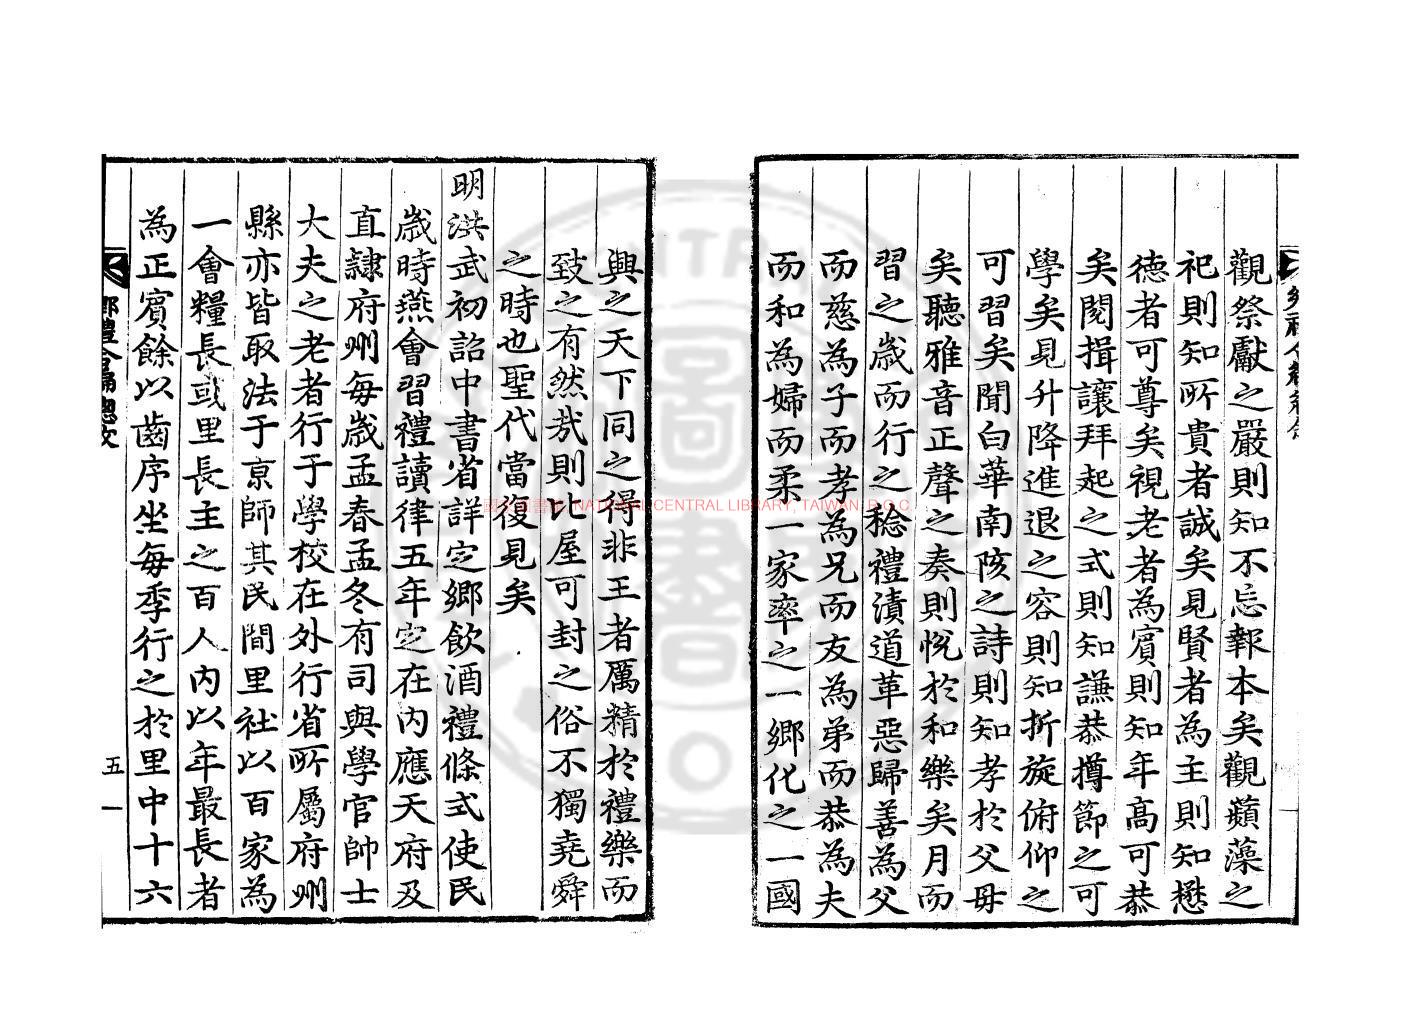 觀祭獻之嚴則知不忘報本矣觀蘋藻之
祀則知所貴者誠矣見賢者為主則知懋
德者可尊矣視老者為賓則知年高可恭
矣閱揖讓拜起之式則知謙恭撙節之可
學矣見升降進退之容則知折旋俯仰之
可習矣聞白華南陔之詩則知孝於父母
矣聽雅音正聲之奏則悅於和樂矣月而
習之歲而行之稔禮漬道革惡歸善為父
而慈為子而孝為兄而友為弟而恭為夫
而和為婦而柔一家率之一鄉化之一國
與之天下同之得非王者厲精於禮樂而
致之有然哉則比屋可封之俗不獨堯舜
之時也聖代當復見矣
明洪武初詔中書省詳定鄉飲酒禮條式使民
歲時燕會習禮讀律五年定在內應天府及
直隷府州每歲孟春孟冬有司與學官帥士
大夫之老者行于學校在外行省所屬府州
縣亦皆取法于京師其民間里社以百家為
一會糧長或里長主之百人內以年最長者
為正賓餘以齒序坐每季行之於里中十六
五
國家圖書館, NATIONAL CENTRAL LIBRARY, TAIWAN, R.O.C